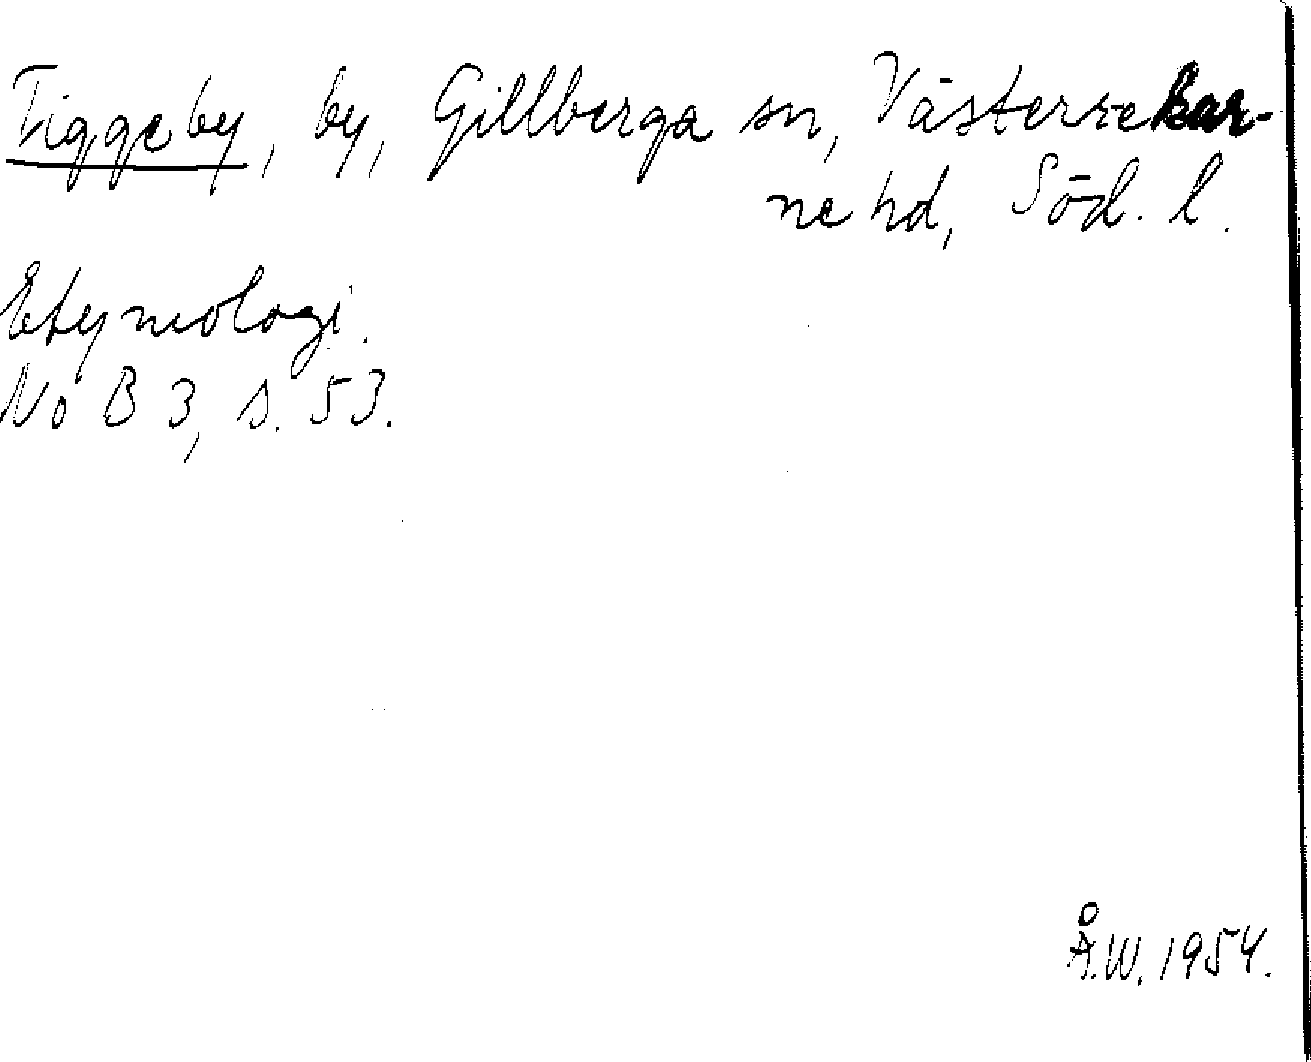 Tiggeby, by, Gillberga sn, Västerrekar-
ne hd, Söd. l.
Etymologi.
No B 3, s. 53.
Å.W. 1954.